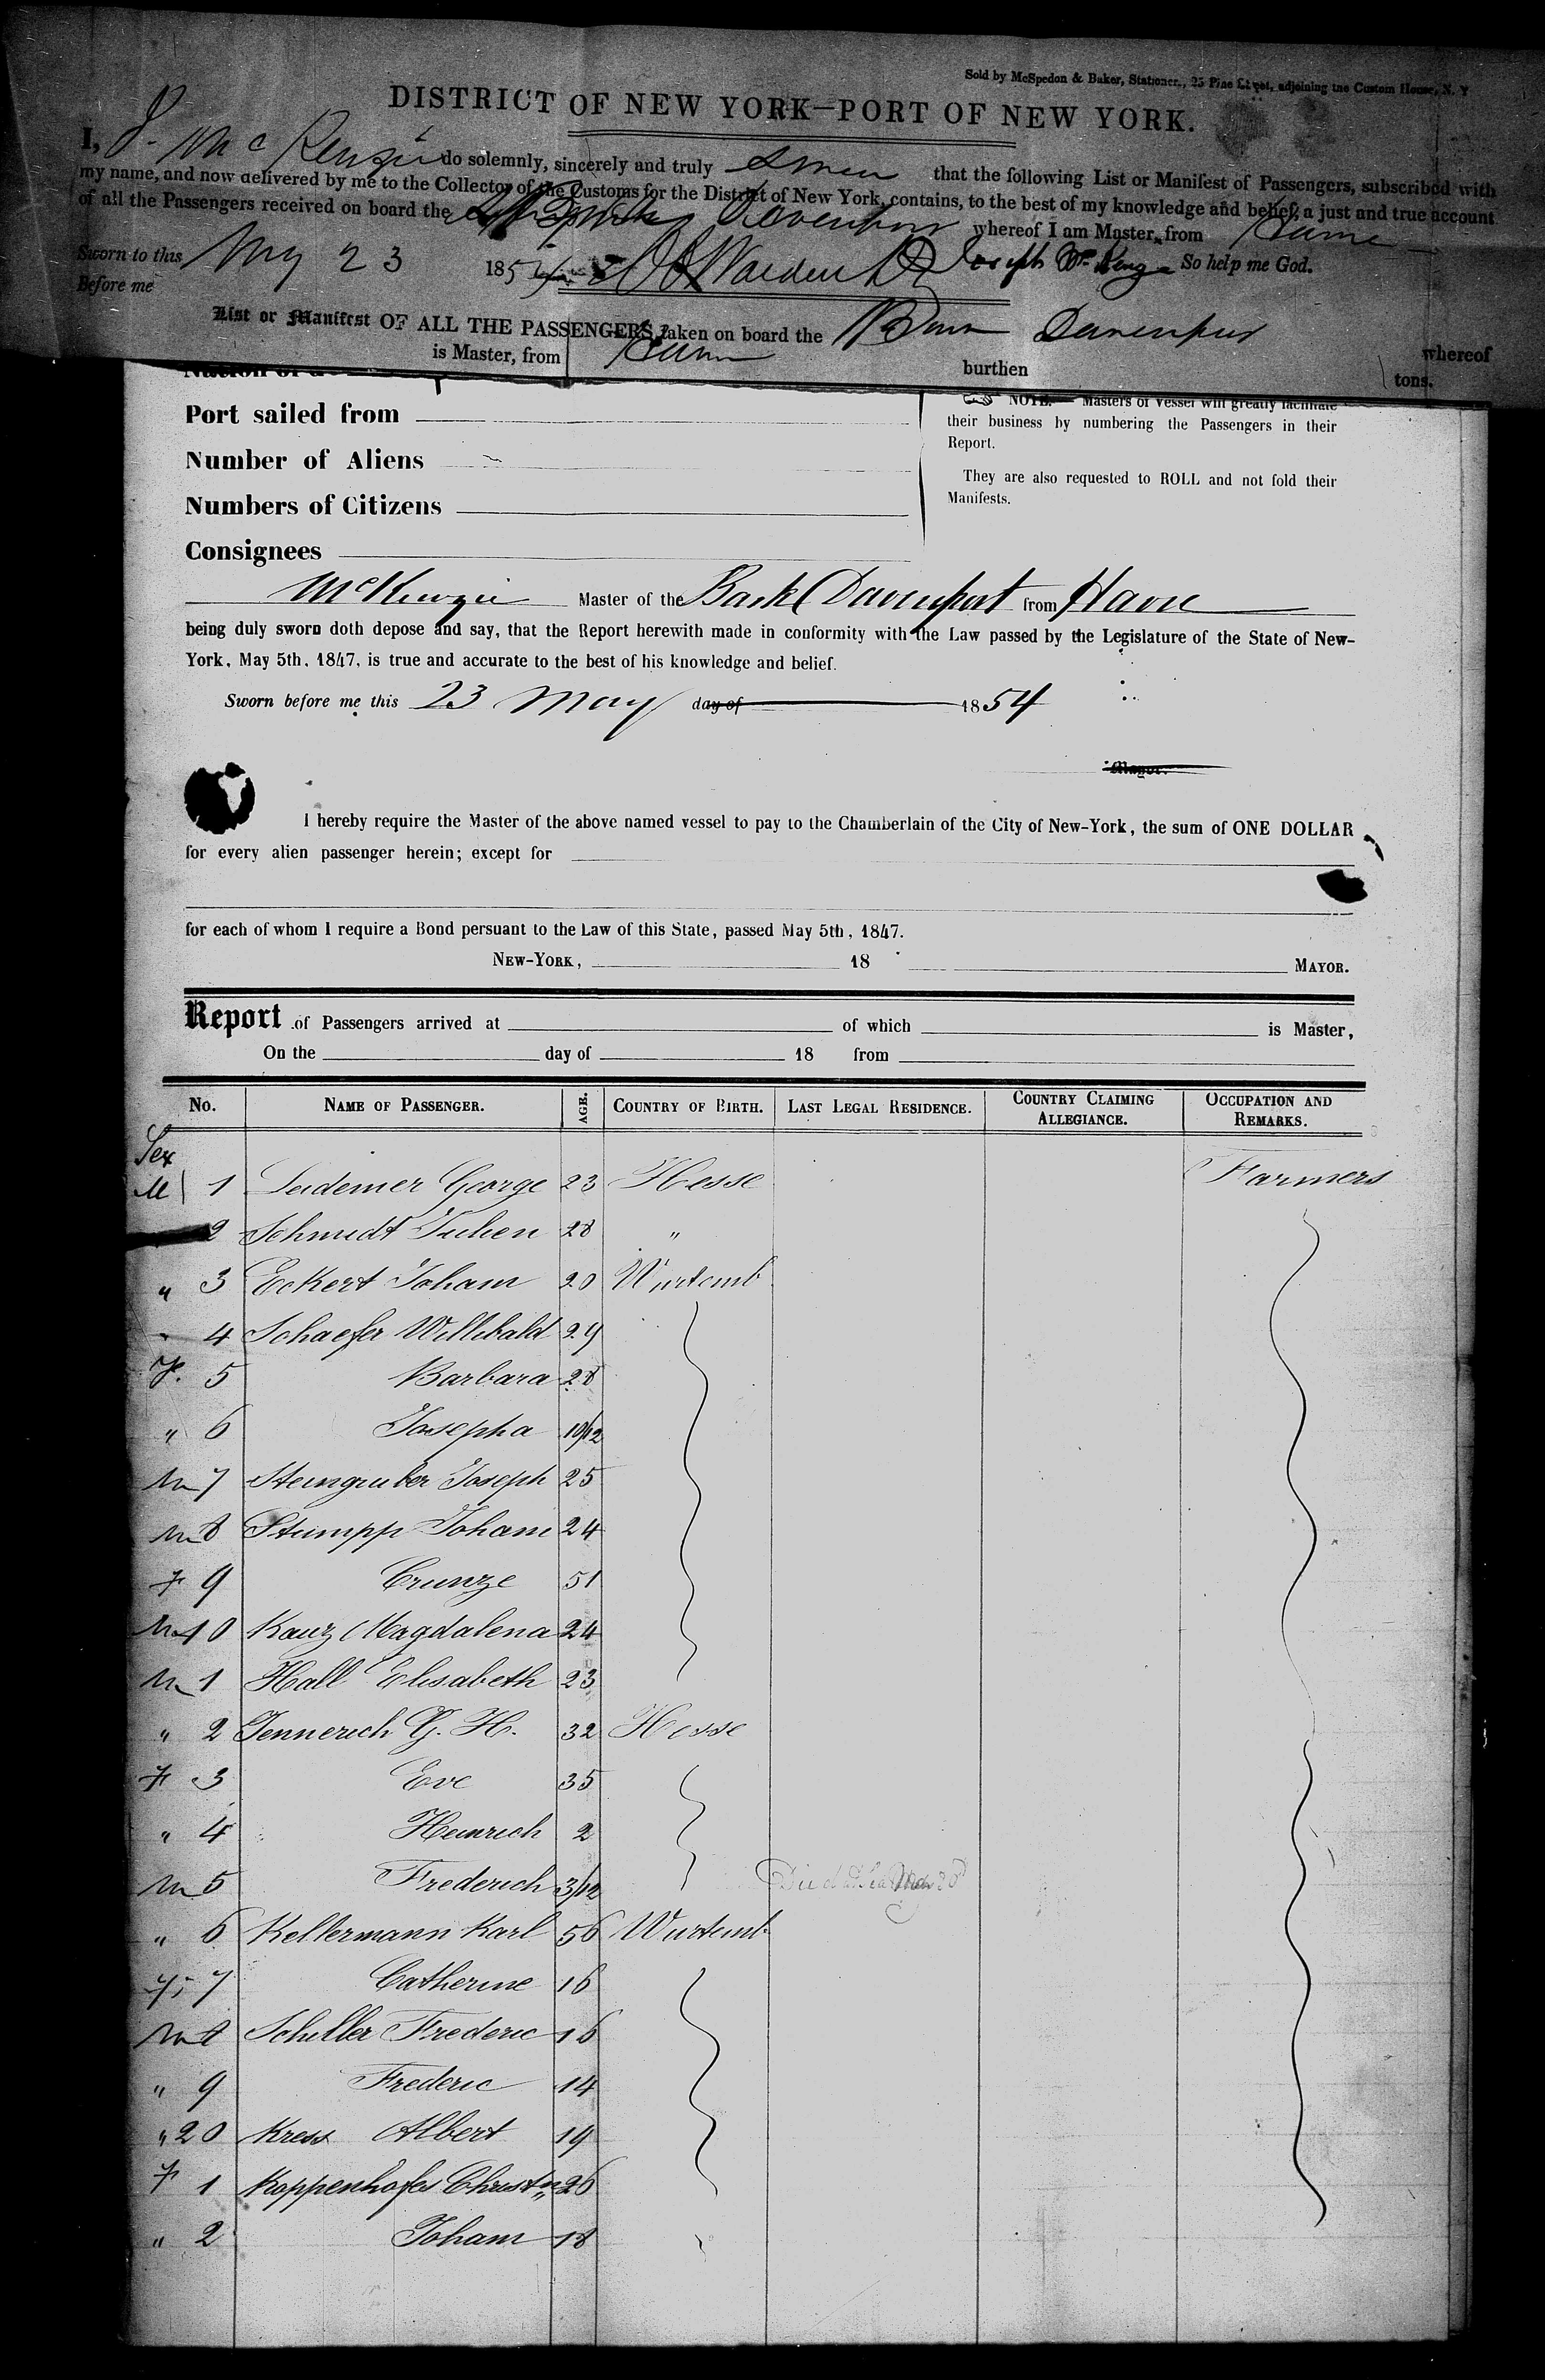 Sold by McSpedon & Baker, Stationers, 25 Pine Street, adjoining the Custom House, N. Y
DISTRICT OF NEW YORK—PORT OF NEW YORK.
I, J. McKenzie do solemnly, sincerely and truly swear that the following List or Manifest of Passengers, subscribed with
my name, and now delivered by me to the Collector of the Customs for the District of New York, contains, to the best of my knowledge and belief, a just and true account
of all the Passengers received on board the Davenport whereof I am Master, from Havre
Sworn to this May 23 1854 Joseph McKenzie So help me God.
Before me
List or Manifest OF ALL THE PASSENGERS taken on board the Bark Davenport whereof
is Master, from Havre burthen tons.
Port sailed from
Number of Aliens
Numbers of Citizens
Consignees
NOTE.— Masters of Vessel will greatly facilitate
their business by numbering the Passengers in their
Report.
They are also requested to ROLL and not fold their
Manifests.
McKenzie Master of the Bark Davenport from Havre
being duly sworn doth depose and say, that the Report herewith made in conformity with the Law passed by the Legislature of the State of New-
York, May 5th, 1847, is true and accurate to the best of his knowledge and belief.
Sworn before me this 23 May day of 1854
Mayor.
I hereby require the Master of the above named vessel to pay to the Chamberlain of the City of New-York, the sum of ONE DOLLAR
for every alien passenger herein; except for
for each of whom I require a Bond persuant to the Law of this State, passed May 5th, 1847.
NEW-YORK, 18 MAYOR.
Report of Passengers arrived at of which is Master,
On the day of 18 from
No. NAME OF PASSENGER. AGE. COUNTRY OF BIRTH. LAST LEGAL RESIDENCE. COUNTRY CLAIMING ALLEGIANCE. OCCUPATION AND REMARKS.
Sex
M 1 Leidemer George 23 Hesse Farmers
2 Schmidt 28 "
" 3 Eckert Joham 20 Wurtemb
" 4 Schaefer Willibald 29
F. 5 Barbara 28
" 6 Josepha 10/12
M 7 Steingruber Joseph 25
M 8 Stumpp Johann 24
F 9 51
M 10 Kauz Magdalena 24
M 1 Hall Elisabeth 23
" 2 Jennerich G. H. 32 Hesse
F 3 Eve 35
" 4 Heinrich 2
M 5 Frederich 3/12 Died at Sea
" 6 Kellermann Karl 56 Wurtemb
F 7 Catherine 16
M 8 Schiller Frederic 16
" 9 Frederic 14
" 20 Kress Albert 19
F 1 Koppenhofer Christn 26
" 2 Joham 18